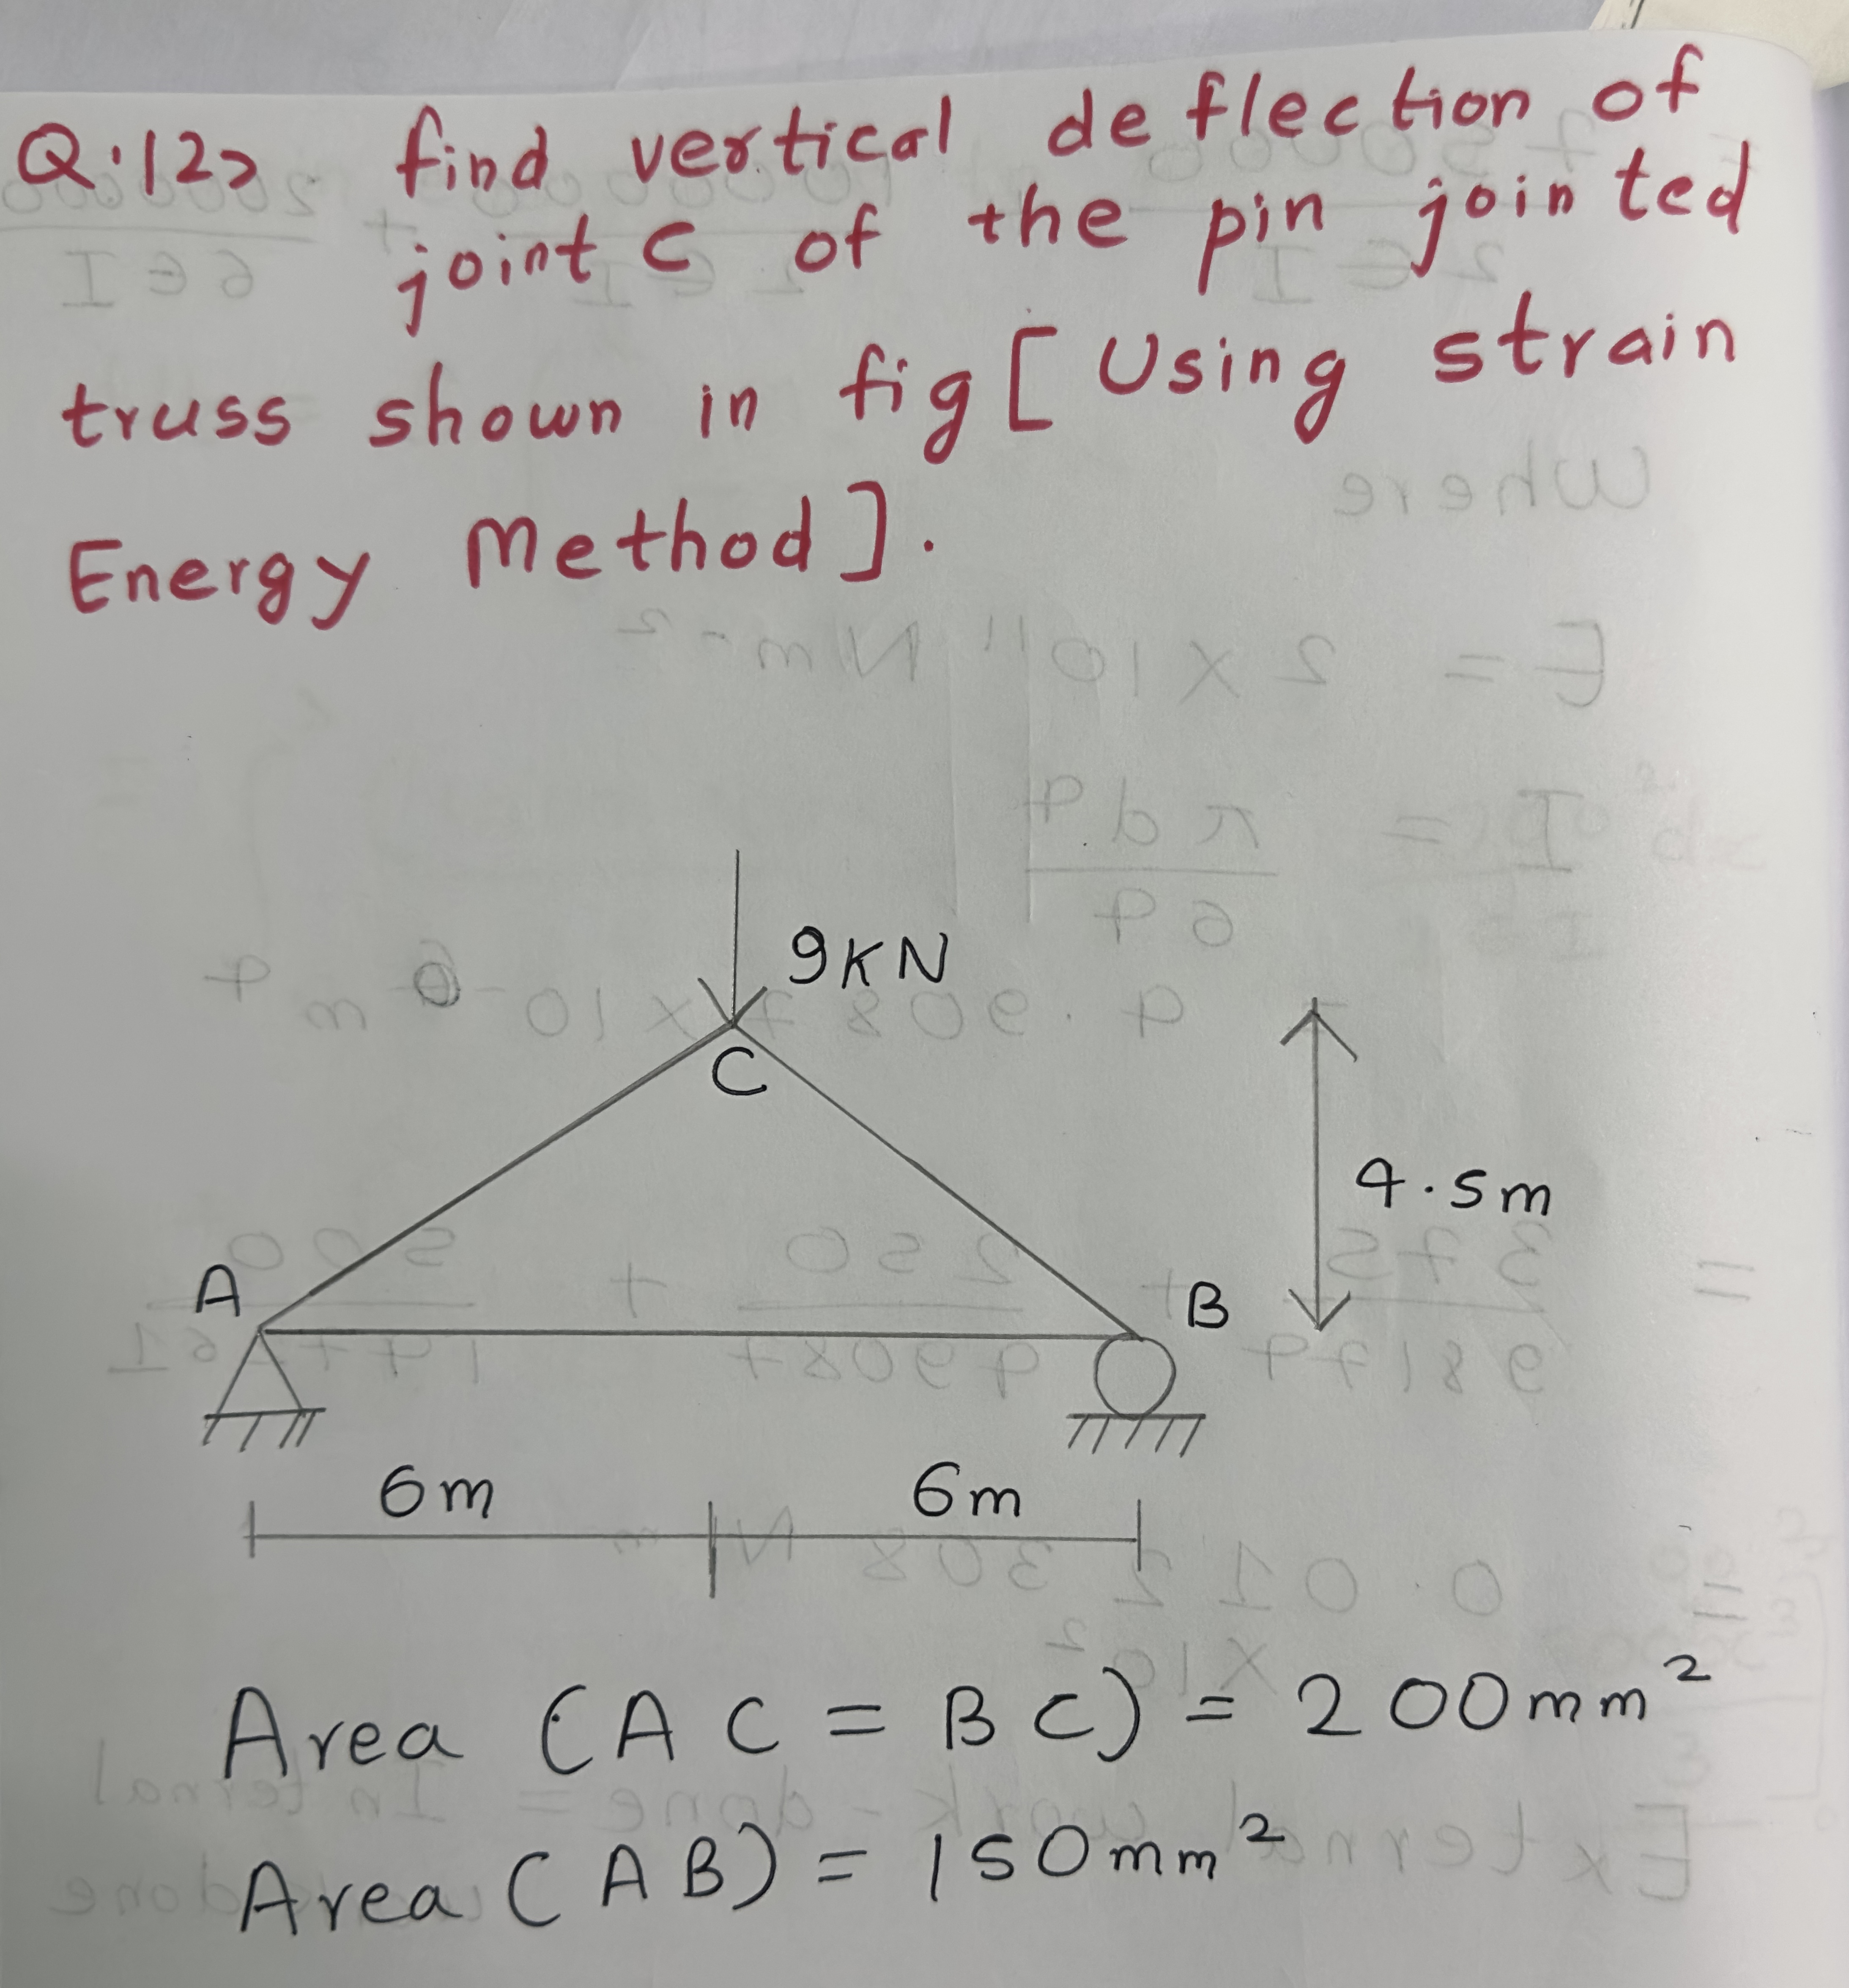 Q.12> find vertical deflection of
joint C of the pin jointed
truss shown in fig [Using strain
Energy Method].
9KN
C
4.5m
A
B
6m
6m
Area (AC = BC) = 200mm²
Area (AB) = 150mm²